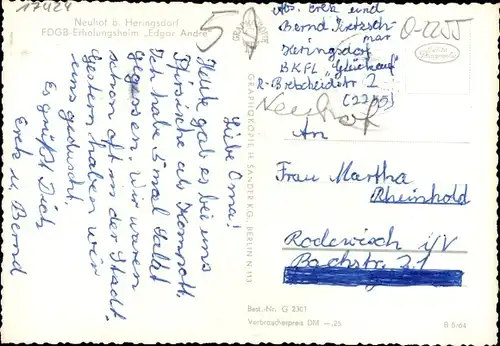 17424
Neuhof b. Heringsdorf
FDGB-Erholungsheim „Edgar André"
Abs. Erek und
Bernd Kretzsch-
mar
Heringsdorf
BKFL „Glückauf"
R-Breitscheidstr 2
(2255)
Neuhof
O-2255
Liebe Oma!
Heute gab es bei uns
Pfirsiche als Kompott.
Ich habe 5 mal Salat
gegessen. Wir waren
schon oft in der Stadt.
Gestern haben wir
uns geduscht.
Es grüßt Dich
Erek u. Bernd
GRAPHOKOPIE H. SANDER KG., BERLIN N 113
An
Frau Martha
Rheinhold
Rodewisch i/V
Bachstr. 31
Best.-Nr. G 2301
Verbraucherpreis DM —,25
B 8/64